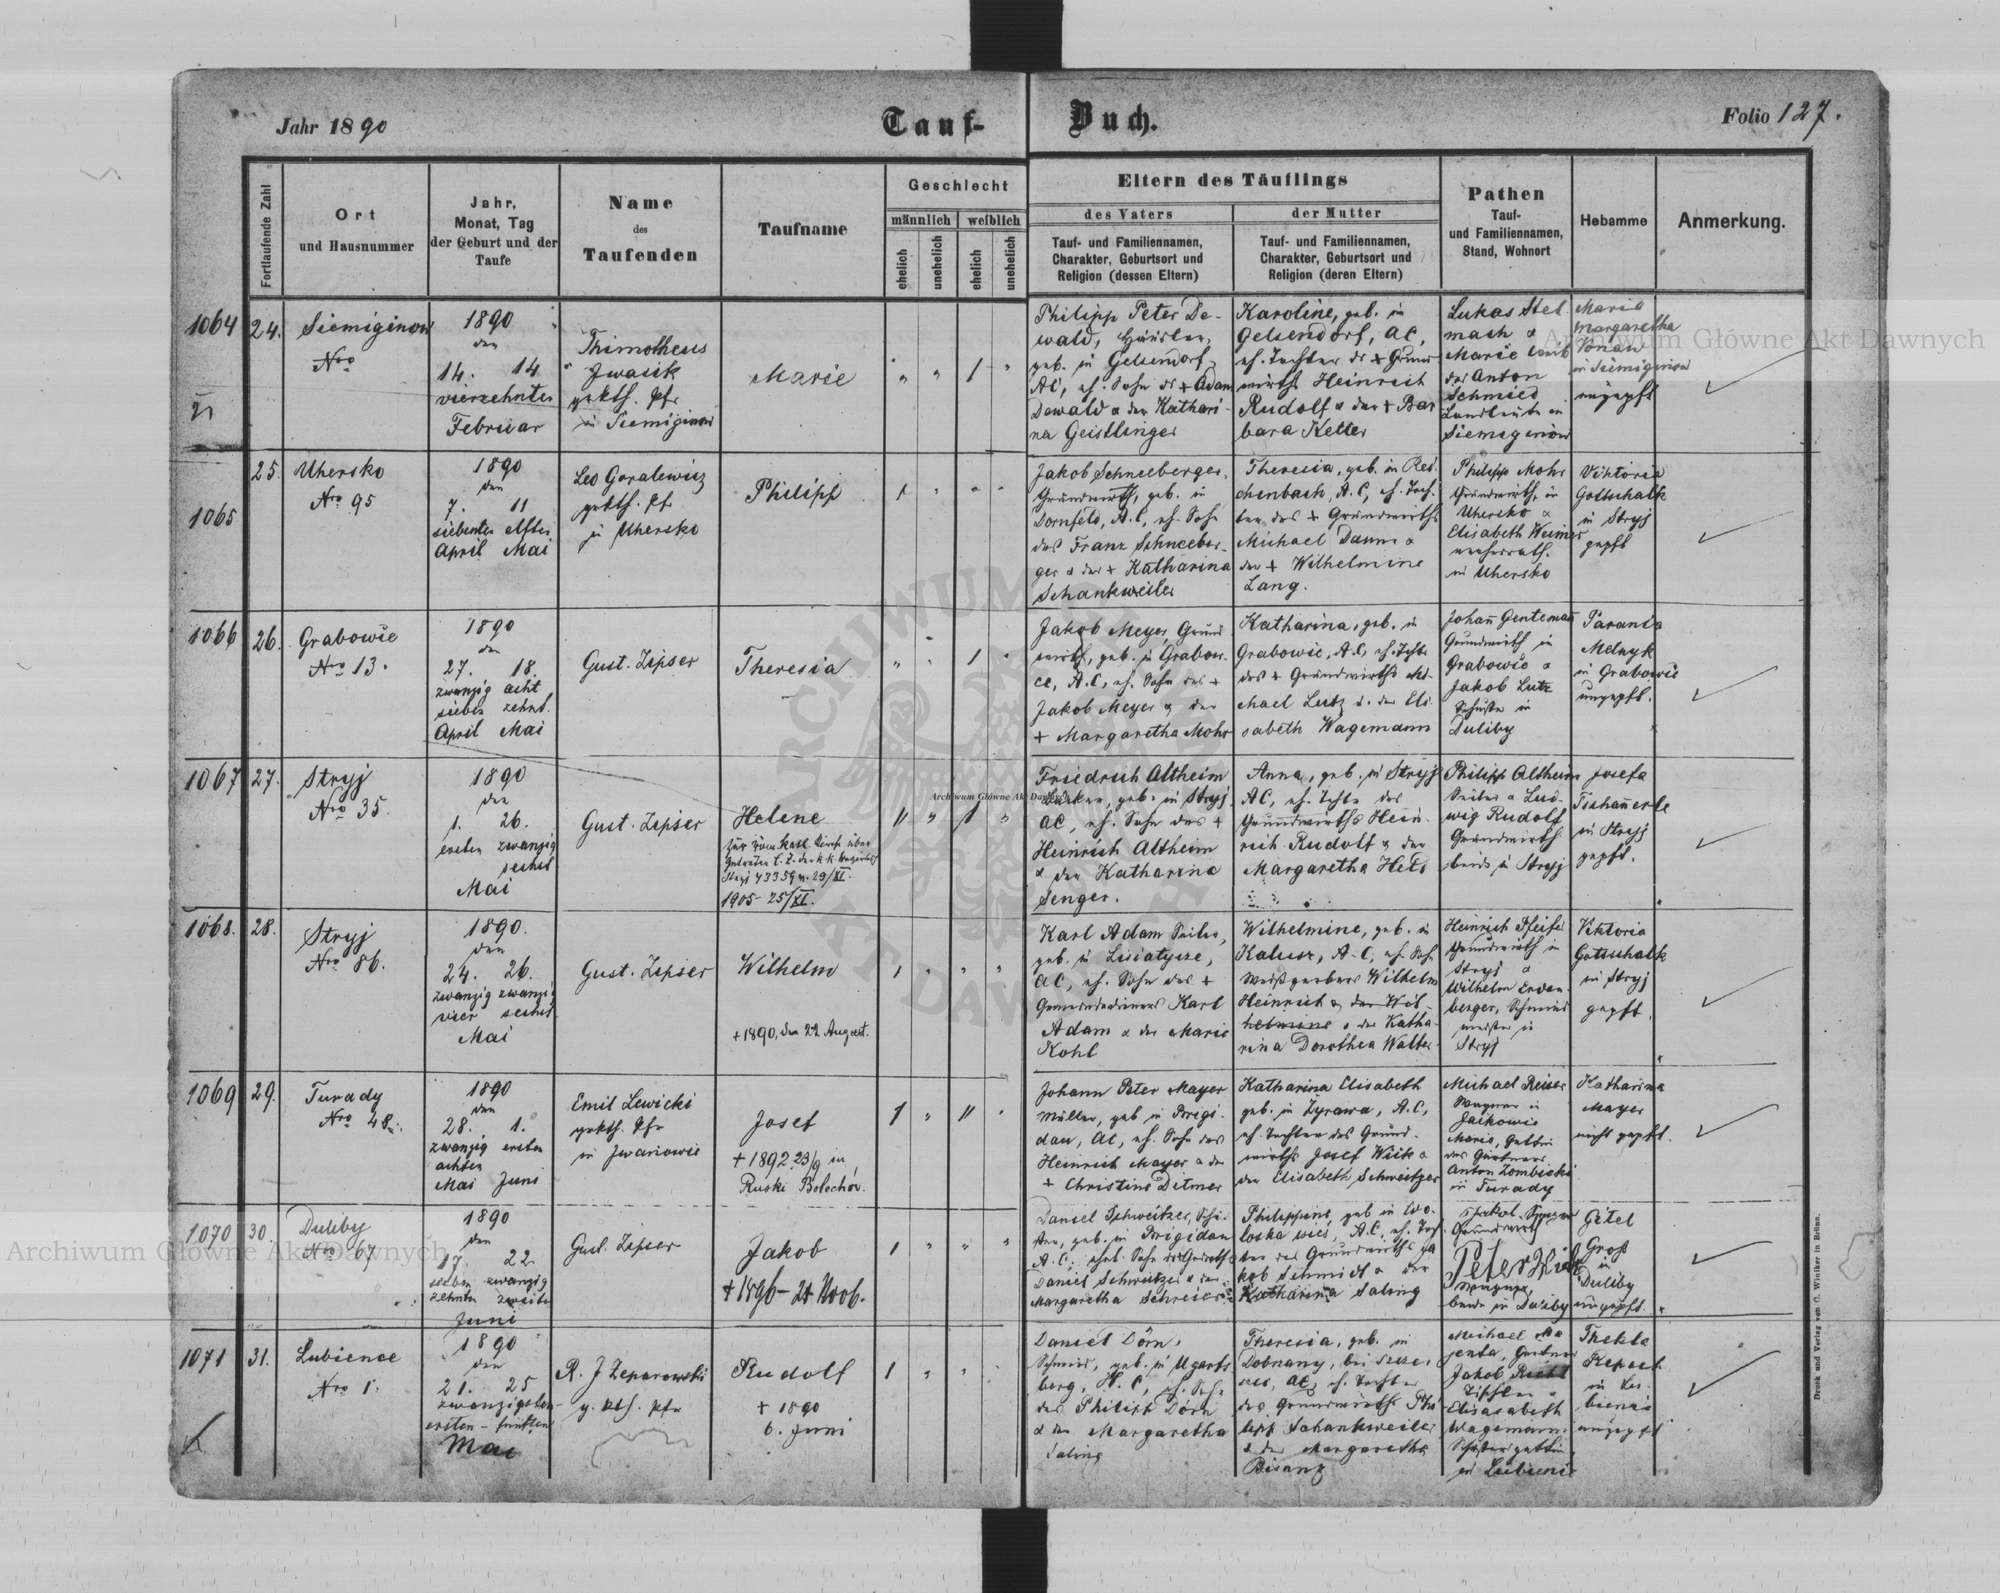 Jahr 1890
Tauf-
Buch.
Folio 127.
Fortlaufende Zahl
Ort
und Hausnummer
Jahr,
Monat, Tag
der Geburt und der
Taufe
Name
des
Taufenden
Taufname
Geschlecht
männlich
weiblich
ehelich
unehelich
ehelich
unehelich
Eltern des Täuflings
des Vaters
Tauf- und Familiennamen,
Charakter, Geburtsort und
Religion (dessen Eltern)
der Mutter
Tauf- und Familiennamen,
Charakter, Geburtsort und
Religion (deren Eltern)
Pathen
Tauf-
und Familiennamen,
Stand, Wohnort
Hebamme
Anmerkung.
1064
24.
Siemiginow
Nro
1890
den
14. 14
vierzehnten
Februar
Thimotheus
Jwasik
gr kth. Pfr
in Siemiginow
Marie
Philipp Peter De-
wald, Häusler,
geb. in Gelsendorf,
AC, eh. Sohn des + Adam
Dewald & der Kathari-
na Geistlinger
Karoline, geb. in
Gelsendorf, AC,
eh. Tochter des + Grund-
wirths Heinrich
Rudolf & der + Bar
bara Ketter
Lukas Stel
mach &
Marie Weib
des Anton
Schmied
Landleute in
Siemiginow
Maria
Margaretha
in Siemiginow
ungepft
1065
25.
Uhersko
Nro 95
1890
den
7. 11
siebenten elften
April Mai
Leo Goralewicz
gr kth. Pfr
in Uhersko
Philipp
Jakob Schneeberger,
Grundwirth, geb. in
Dornfeld, A.C, eh. Sohn
des Franz Schneeber-
ger & der + Katharina
Schankweiler
Theresia, geb. in Rei-
chenbach, A.C, eh. Toch-
ter des + Grundwirths
Michael Daum &
der + Wilhelmine
Lang.
Philipp Mohr
Grundwirth in
Uhersko &
Elisabeth Weimer
unverheirath.
in Uhersko
Viktoria
Gottschalk
in Stryj
gepft
1066
26.
Grabowie
Nro 13.
1890
den
27. 18.
zwanzig acht
sieben zehnt.
April Mai
Gust. Zipser
Theresia
Jakob Meyer, Grund
wirth, geb. in Grabow-
ce, A.C, eh. Sohn des +
Jakob Meyer & der
+ Margaretha Mohr
Katharina, geb. in
Grabowie, A.C, eh. Tochter
des + Grundwirths Mi-
chael Lutz & der Eli-
sabeth Wagemann
Johann Gentemann
Grundwirth in
Grabowie &
Jakob Lutz
in
Duliby
Parania
Melnyk
in Grabowie
ungepft.
1067
27.
Stryj
Nro 35.
1890
den
1. 26.
ersten zwanzig
sechst.
Mai
Gust. Zipser
Helene
Zur röm. kath. Kirche über
getreten
Stryj 43359 v. 29/XI.
1905 - 25/XI.
Friedrich Altheim
geb. in Stryj
AC, eh. Sohn des +
Heinrich Altheim
& der Katharina
Senger.
Anna, geb. in Stryj
AC, eh. Tochter des
Grundwirths Hein-
rich Rudolf & der
Margaretha
Philipp Altheim
Seiler & Lud-
wig Rudolf
Grundwirth
beide in Stryj
Josefa
Tishannerle
in Stryj
gepft.
1068.
28.
Stryj
Nro 86.
1890.
den
24. 26.
zwanzig zwanzig
vier sechst
Mai
Gust. Zipser
Wilhelm
+ 1890, den 22. August.
Karl Adam Seiler,
geb. in Lisiatycze,
AC, eh. Sohn des +
Gemeindedieners Karl
Adam & der Marie
Kohl
Wilhelmine, geb. in
Kalusz, A.C, eh. Toch.
Weißgerbers Wilhelm
Heinrich & der Wil-
helmine & der Katha-
rina Dorothea Walter.
Heinrich Pfeifer
Grundwirth in
Stryj &
Wilhelm Erden
berger, Schmied
meister in
Stryj
Viktoria
Gottschalk
in Stryj
gepft.
1069
29.
Turady
Nro 48.
1890
den
28. 1.
zwanzig ersten
achten
Mai Juni
Emil Lewicki
gr kth. Pfr
in Jwanowie
Josef
+ 1892 23/9 in
Ruski Bolechów.
Johann Peter Mayer
Müller, geb in Brigi-
dau, AC, eh. Sohn des
Heinrich Mayer & der
+ Christine Ditmer
Katharina Elisabeth
geb. in Zyrawa, A.C,
eh. Tochter des Grund-
wirths Josef Wick &
der Elisabeth Schweitzer
Michael Reiser
Wagner in
Jaikowie
Marie, Gattin
des Gärtners
Anton Zombicki
in Turady
Katharina
Mayer
nicht gepft.
1070
30.
Duliby
Nro 67
1890
den
17. 22
sieben zwanzig
zehnten zweiten
Juni
Gust. Zipser
Jakob
+ 1896 - 21 Novb.
Daniel Schweitzer,
geb. in Brigidau
A.C, ehel. Sohn des Grundwirths
Daniel Schweitzer & der
Margaretha Schreier
Philippine, geb in Wo-
loska wieś, A.C, eh. Toch-
ter des Grundwirths Ja
kob Schmidt & der
Katharina Saling
Grundwirth
Peter Wick
Wagner
beide in Duliby
Gitel
Groß
in
Duliby
ungepft.
1071
31.
Lubience
Nro 1.
1890
den
21. 25
zwanzigsten
ersten - fünften
Mai
R. J Zeparowski
g. kth. Pfr
Rudolf
+ 1890
6. Juni
Daniel Dörn,
Schmied, geb. in Ugarts
berg, H.C, eh. Sohn
des Philipp Dörn
& der Margaretha
Saling
Theresia, geb. in
Dobrzany, bei
AC, eh. Tochter
des Grundwirths Phi
lipp Schankweiler
& der Margaretha
Bisanz
Michael Ma
jenta, Gärtner
Jakob
Tischler &
Elisabeth
Wagemann
in Lubience
Thekla
in Lu-
bience
ungepft
Druck und Verlag von C. Winiker in Brünn.
Archiwum Główne Akt Dawnych
Archiwum Główne Akt Dawnych
Archiwum Główne Akt Dawnych
ARCHIWUM GŁÓWNE AKT DAWNYCH